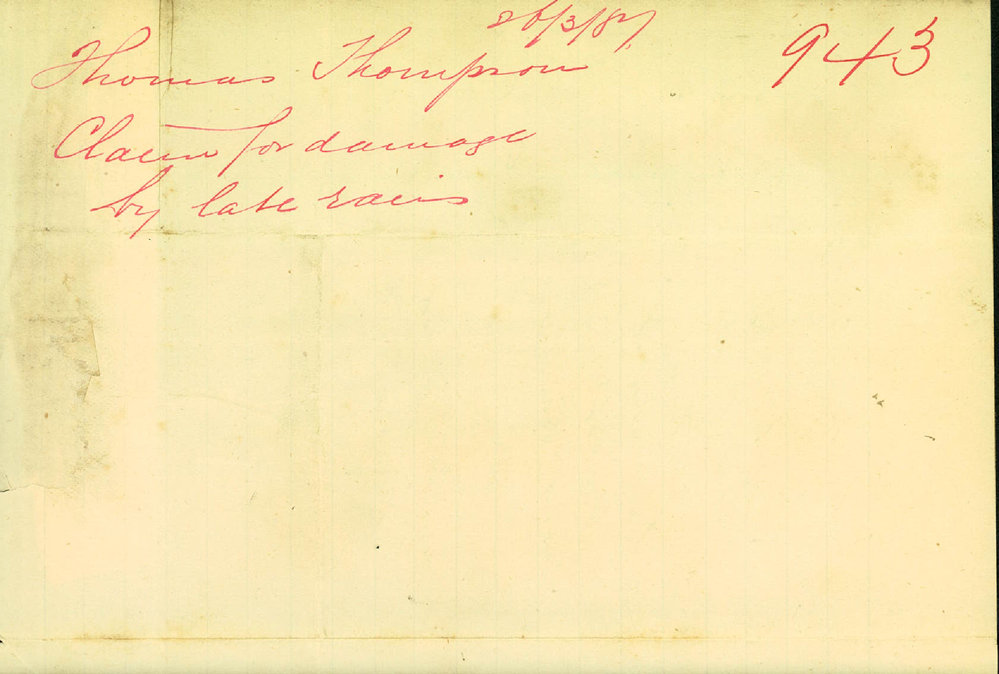 26/3/87
943
Thomas Thompson
Claim for damage
by late rains